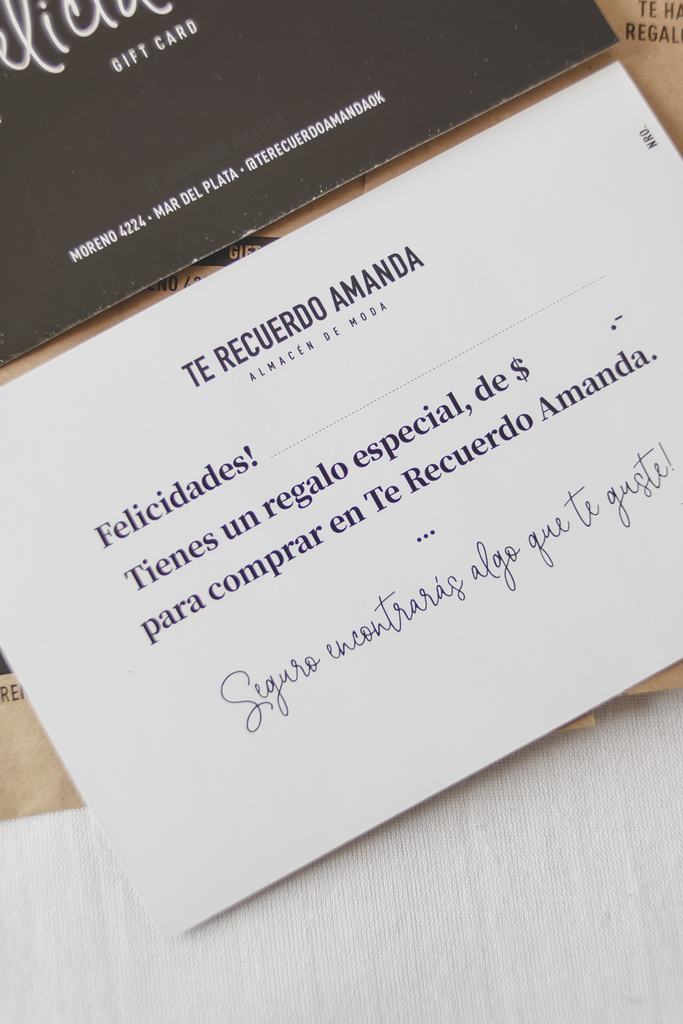 GIFT CARD
TE RECUERDO AMANDA
MORENO 4224 · MAR DEL PLATA · @TERECUERDOAMANDAOK
TE HA
REGALO
NRO.
GIFT
TE RECUERDO AMANDA
ALMACÉN DE MODA
Felicidades!
Tienes un regalo especial, de $ .-
para comprar en Te Recuerdo Amanda.
...
Seguro encontrarás algo que te guste!